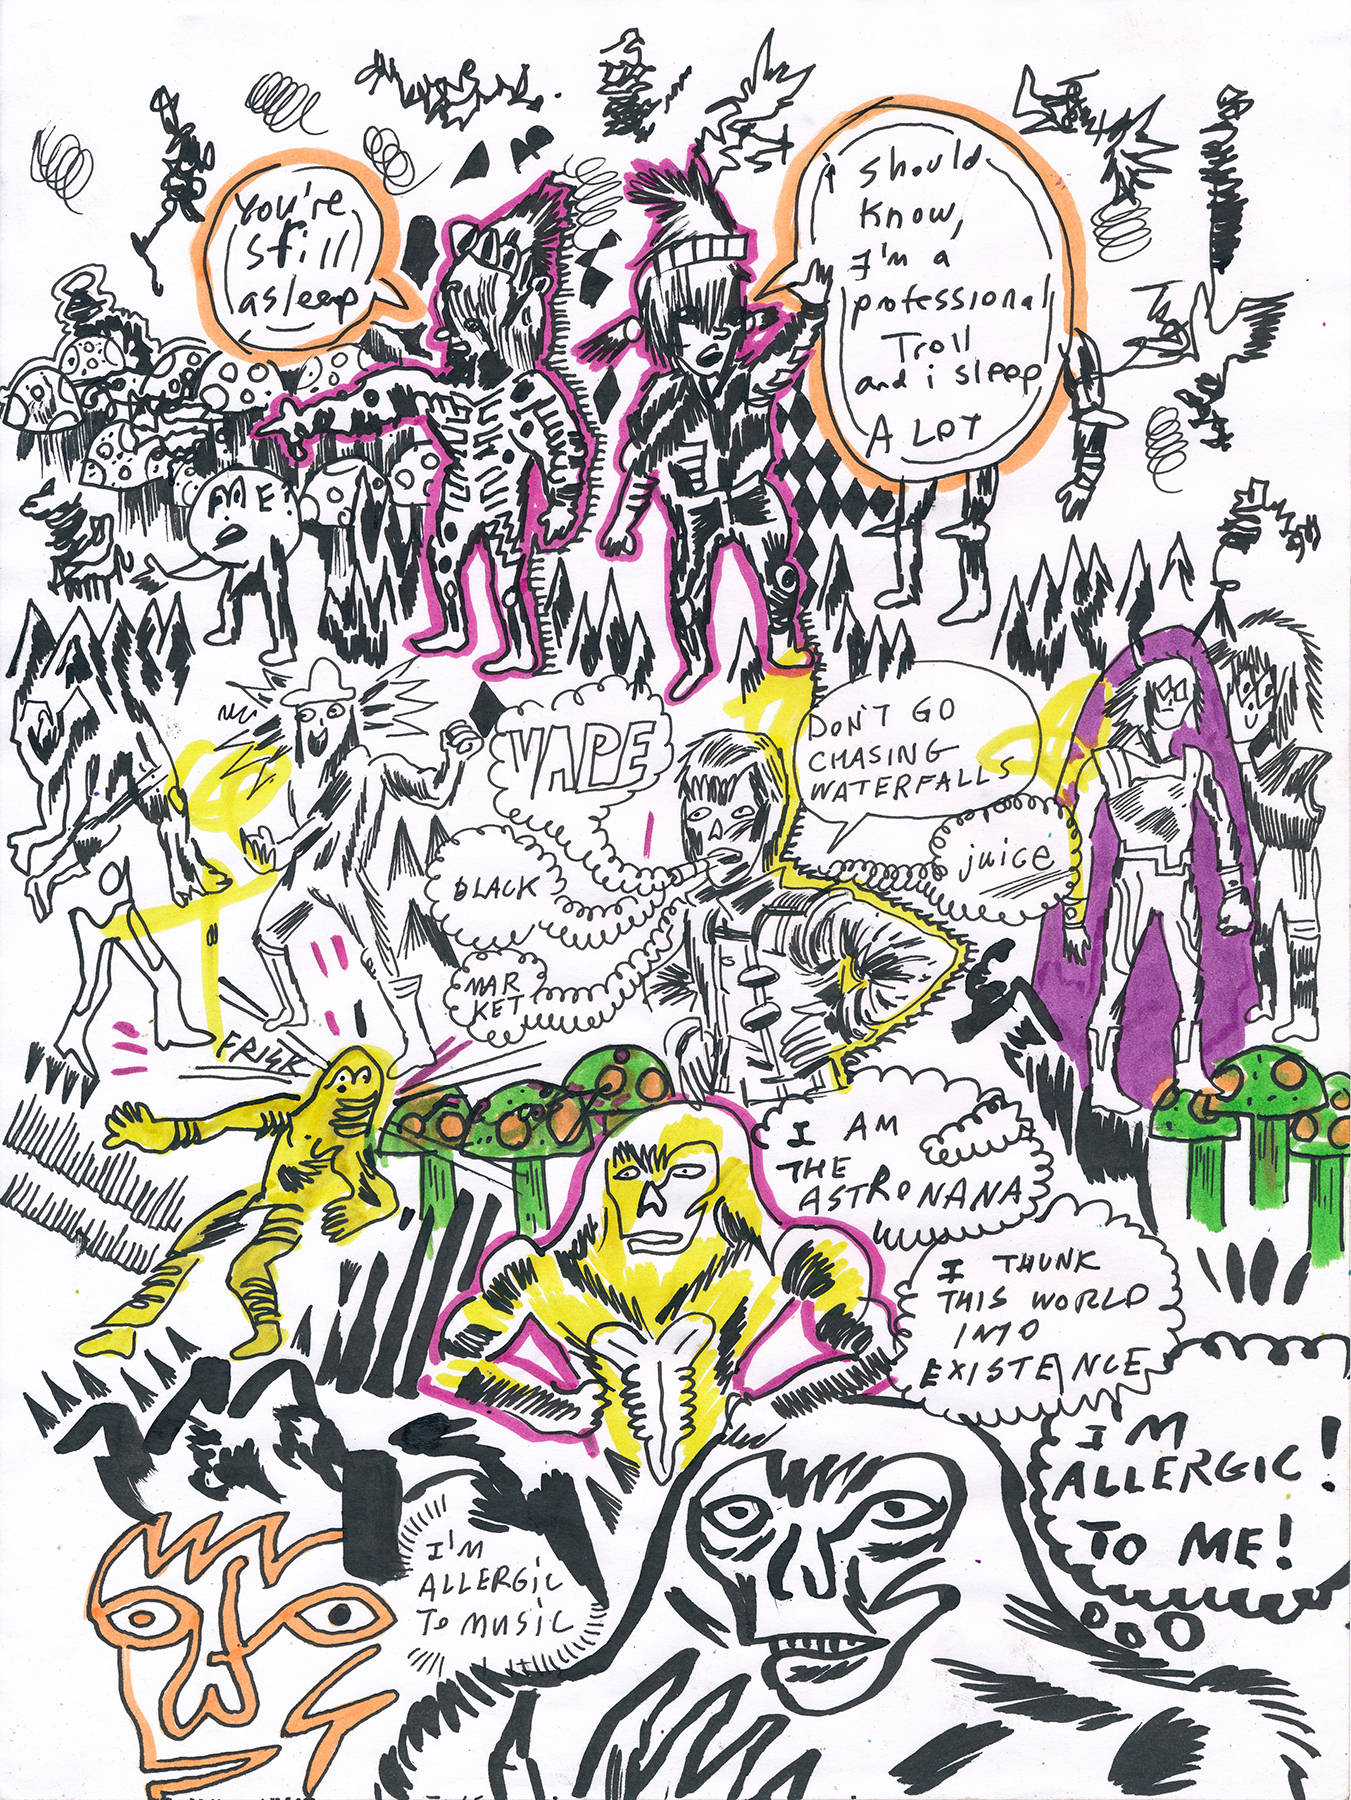 You're
still
asleep
i should
know,
I'm a
professional
Troll
and i sleep
A LOT
VAPE
DON'T GO
CHASING
WATERFALLS
juice
BLACK
MAR
KET
I AM
THE
ASTRONANA
I THUNK
THIS WORLD
INTO
EXISTENCE
I'M
ALLERGIC!
TO ME!
I'M
ALLERGIC
TO MUSIC